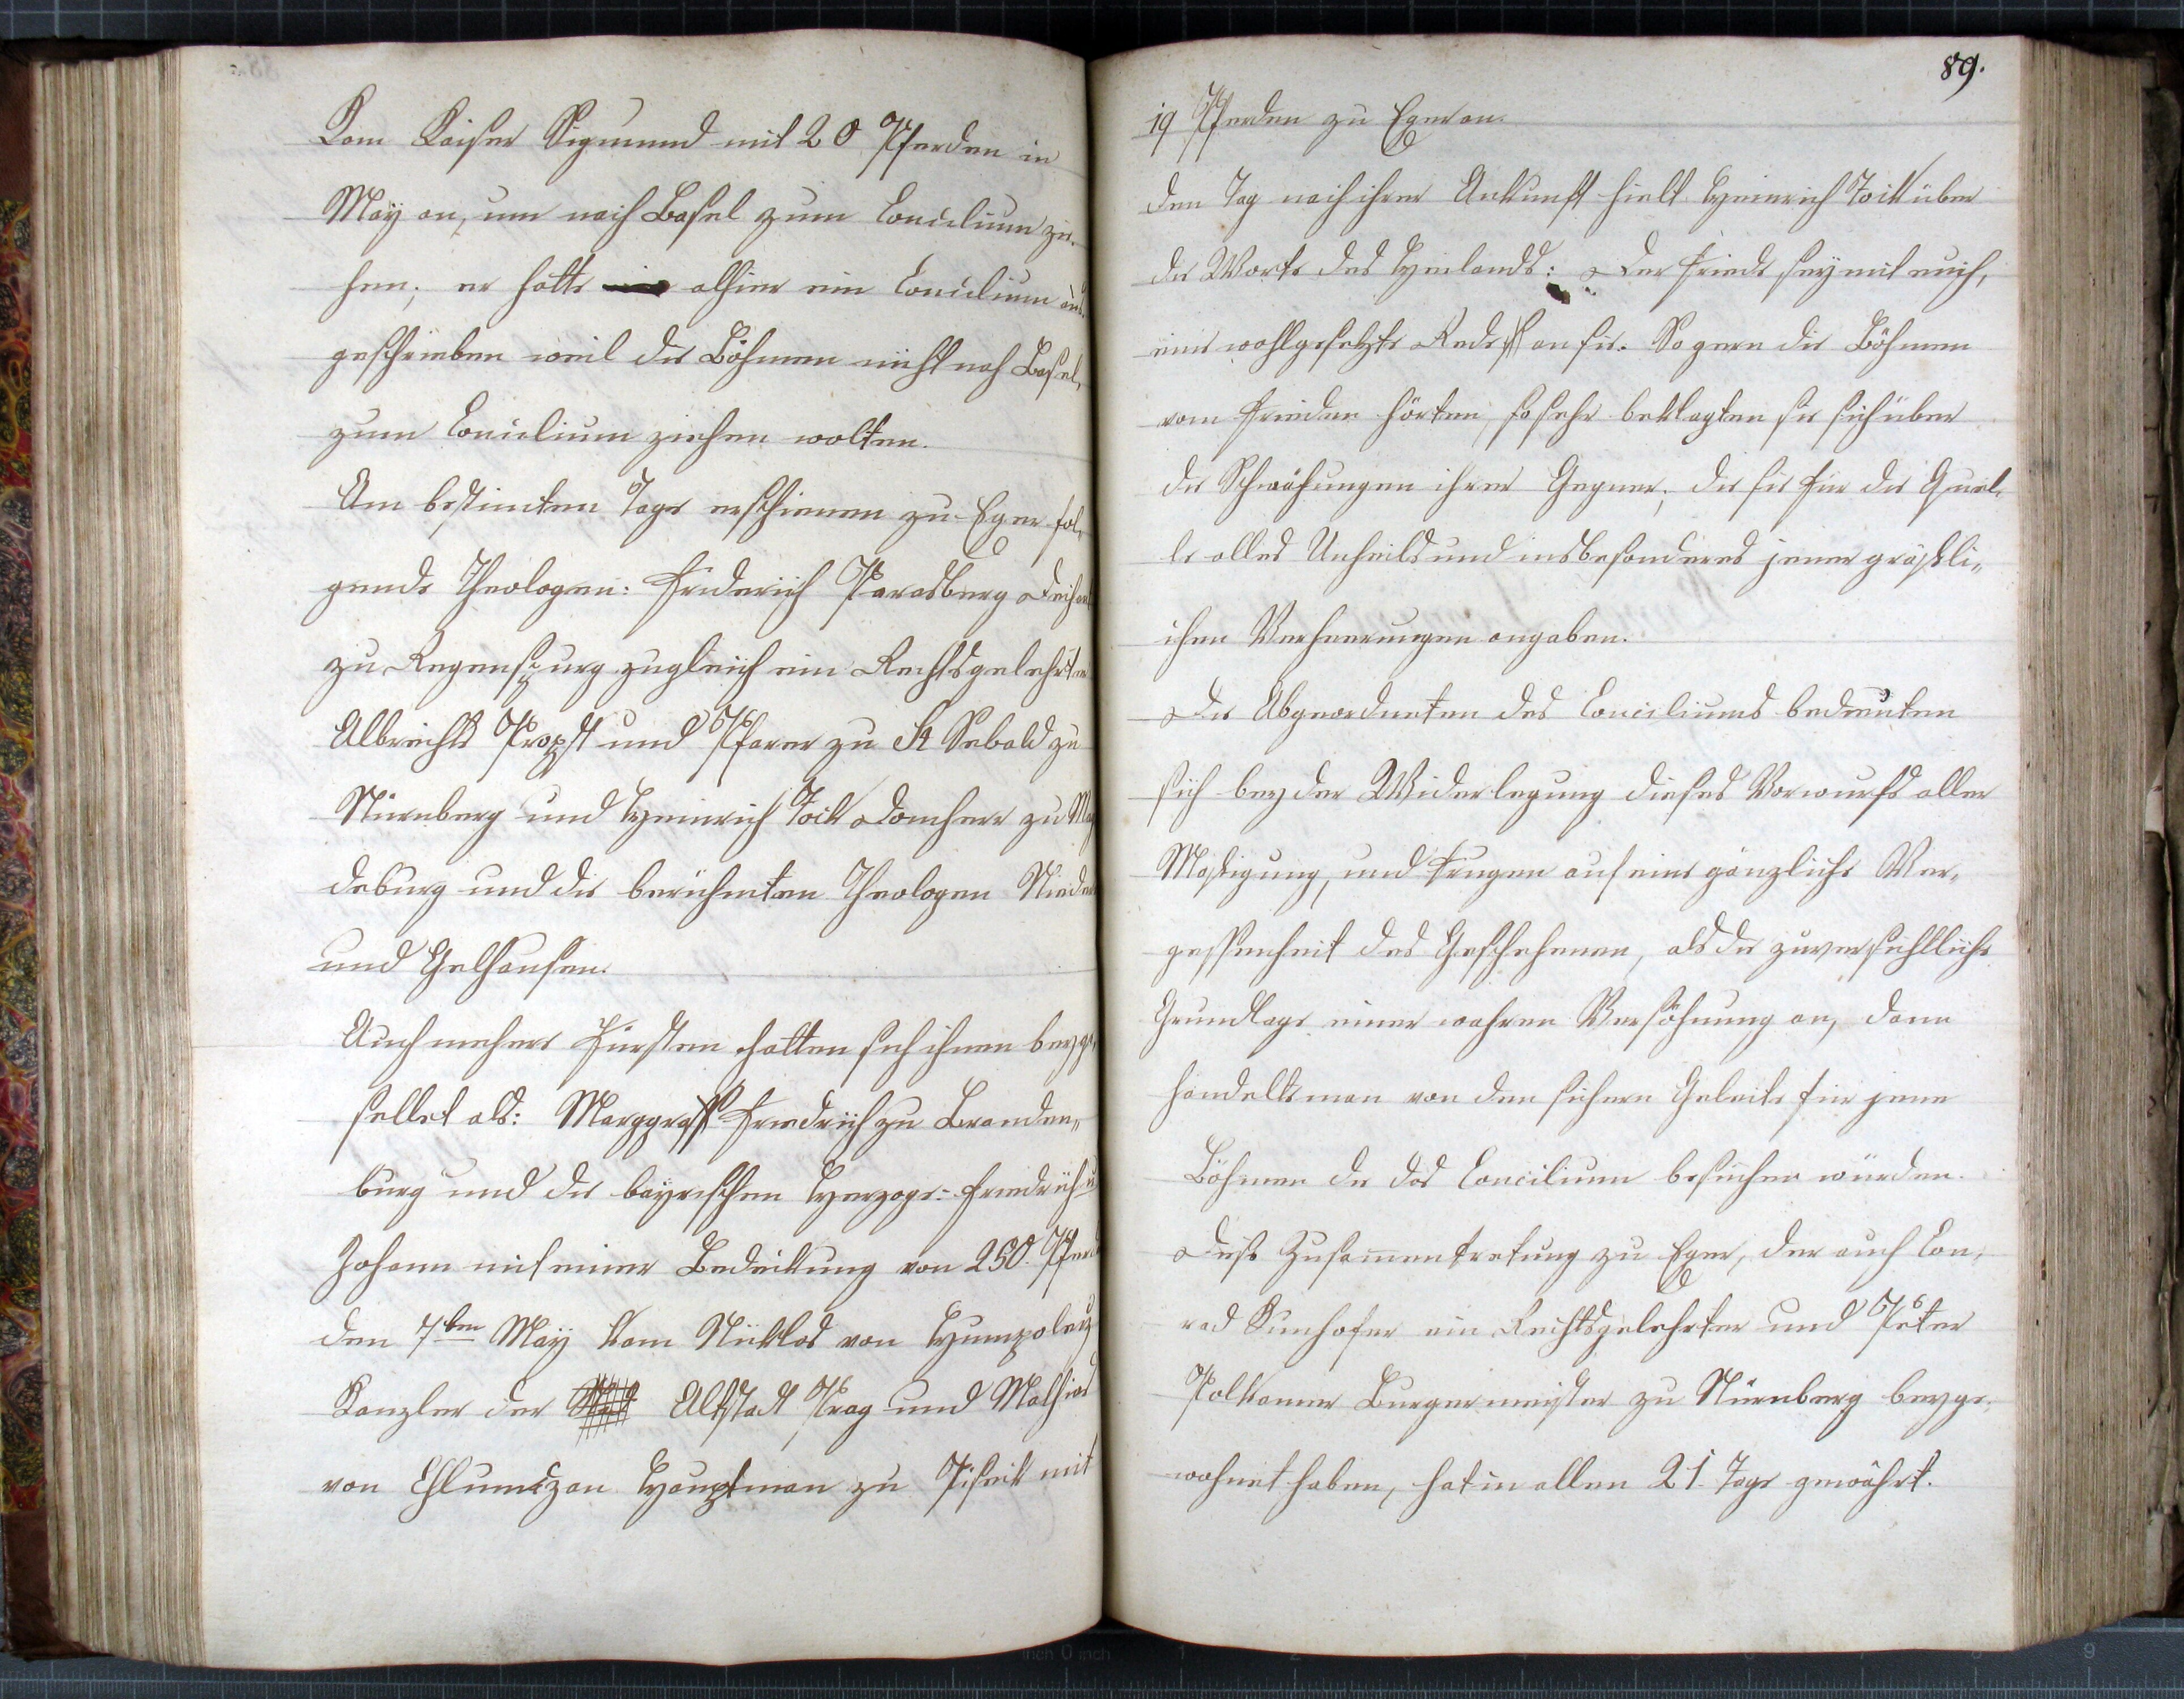 Kam Kaiser Sigmund mit 20 Pferden in
Maÿ an, um nach Basel zum Concilium zie-
hen; er hatte alhier ein Concilium aus-
geschrieben weil die Böhmen nicht nach Basel,
zum Concilium ziehen wolten.
Am bestimten Tage erschienen zu Eger fol-
gende Theologen: Friderich Paradsberg Dechant
zu Regenspurg zugleich ein Rechtsgelehrter
Albrecht Propst und Pfarer zu St Sebald zu
Nürnberg und Heinrich Tock Domherr zu Mag
deburg und die berühmten Theologen Nieder
und Gelhausen.
Auch mehere Fürsten hatten sich ihnen beyge-
sellet als: Marggraf Friedrich zu Branden„
burg und die bayrischen Herzoge: Friedrich u
Johann mit einer Bedeckung von 250. Pferd
den 7ten Maÿ kam Nicklas von Humpoletz
Kanzler der Altstadt Prag und Mathias
von Chlumczan Hauptman zu Piseck mit
89.
19 Pferden zu Eger an.
Den Tag nach ihrer Ankunft hielt Heinrich Tock über
die Worte des Heilands: Der Friede seÿ mit euch,
eine wohlgesetzte Rede an sie. So gern die Böhmen
vom Frieden hörten, so sehr beklagten sie sich über
die Schmähungen ihrer Gegner; die sie für die Quel-
le alles Unheils und insbesonderes jener gräßli„
chen Verheerungen angaben.
Die Abgeordneten des Conciliums bedienten
sich bey der Widerlegung dieses Vorwurfs aller
Mäßigung, und trugen auf eine gänzliche Ver„
gessenheit des Geschehenen, als die zuversichtliche
Grundlage einer wahren Versöhnung an, dann
handelte man von dem sichern Geleite für jene
Böhmen die das Concilium besuchen würden.
Diese Zusammentretung zu Eger, der auch Con-
rad Kunhofer ein Rechtsgelehrter und Peter
Polkamer Burgermeister zu Nürnberg beyge-
wohnet haben, hat in allen 21. Tage gewährt.